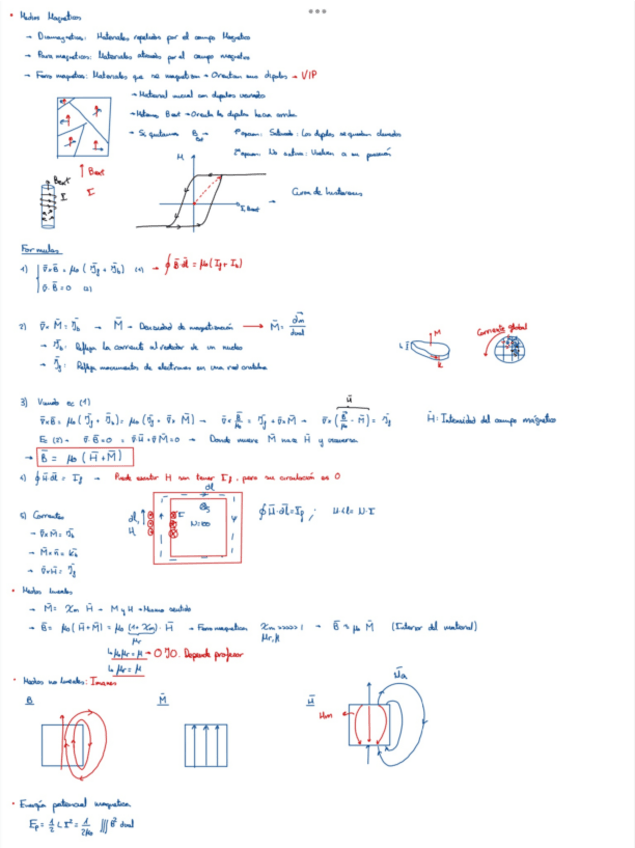 • Medios Magneticos
→ Diamagneticos: Materiales repelidos por el campo Magnetico
→ Paramagneticos: Materiales atraidos por el campo magnetico
→ Ferromagneticos: Materiales que se magnetizan → Orientan sus dipolos → VIP
→ Material inicial con dipolos variados
→ Metemos Bext → Orienta los dipolos hacia arriba
→ Si quitamos Bext → 1ª opcion: Saturado: Los dipolos se quedan clavados
2ª opcion: No satura: Vuelven a su posición
↑ Bext
Bext
I
M
I, Bext
→ Curva de histeresis
Formulas
1) ∇×B̄ = μ₀(J̄f + J̄b) (1) → ∮B̄·dl̄ = μ₀(If + Ib)
∇·B̄ = 0 (2)
2) ∇×M̄ = J̄b → M̄ → Densidad de magnetización → M̄ = dm̄/dvol
→ J̄b: Refleja la corriente alrededor de un nucleo
→ J̄f: Refleja movimiento de electrones en una red cristalina
M
Corriente global
3) Usando ec (1)
∇×B̄ = μ₀(J̄f + J̄b) = μ₀(J̄f + ∇×M̄) → ∇×B̄/μ₀ = J̄f + ∇×M̄ → ∇×(B̄/μ₀ - M̄) = J̄f
H̄
H̄: Intensidad del campo magnético
Ec (2) → ∇·B̄ = 0 = ∇·H̄ + ∇·M̄ = 0 → Donde muere M̄ nace H̄ y viceversa
→ B̄ = μ₀(H̄ + M̄)
4) ∮H̄·dl̄ = If → Puede existir H sin tener If, pero su circulación es 0
5) Corrientes
→ ∇×M̄ = J̄b
→ M̄×n̄ = K̄b
→ ∇×H̄ = J̄f
dl
dl
H
I
N=∞
∮H̄·dl̄ = If ; H·l = N·I
• Medios lineales
→ M̄ = Xm H̄ → M y H → Mismo sentido
→ B̄ = μ₀(H̄+M̄) = μ₀(1+Xm)·H̄ → Ferromagneticos Xm>>>>1 → B̄ ≈ μ₀ M̄ (Interior del material)
μr
↳ μ₀μr = μ → OJO. Depende profesor
↳ μr = μ
• Medios no lineales: Imanes
B̄
M̄
H̄
Hm
H̄a
• Energía potencial magnetica
Ep = 1/2 L I² = 1/2μ₀ ∭B² dvol